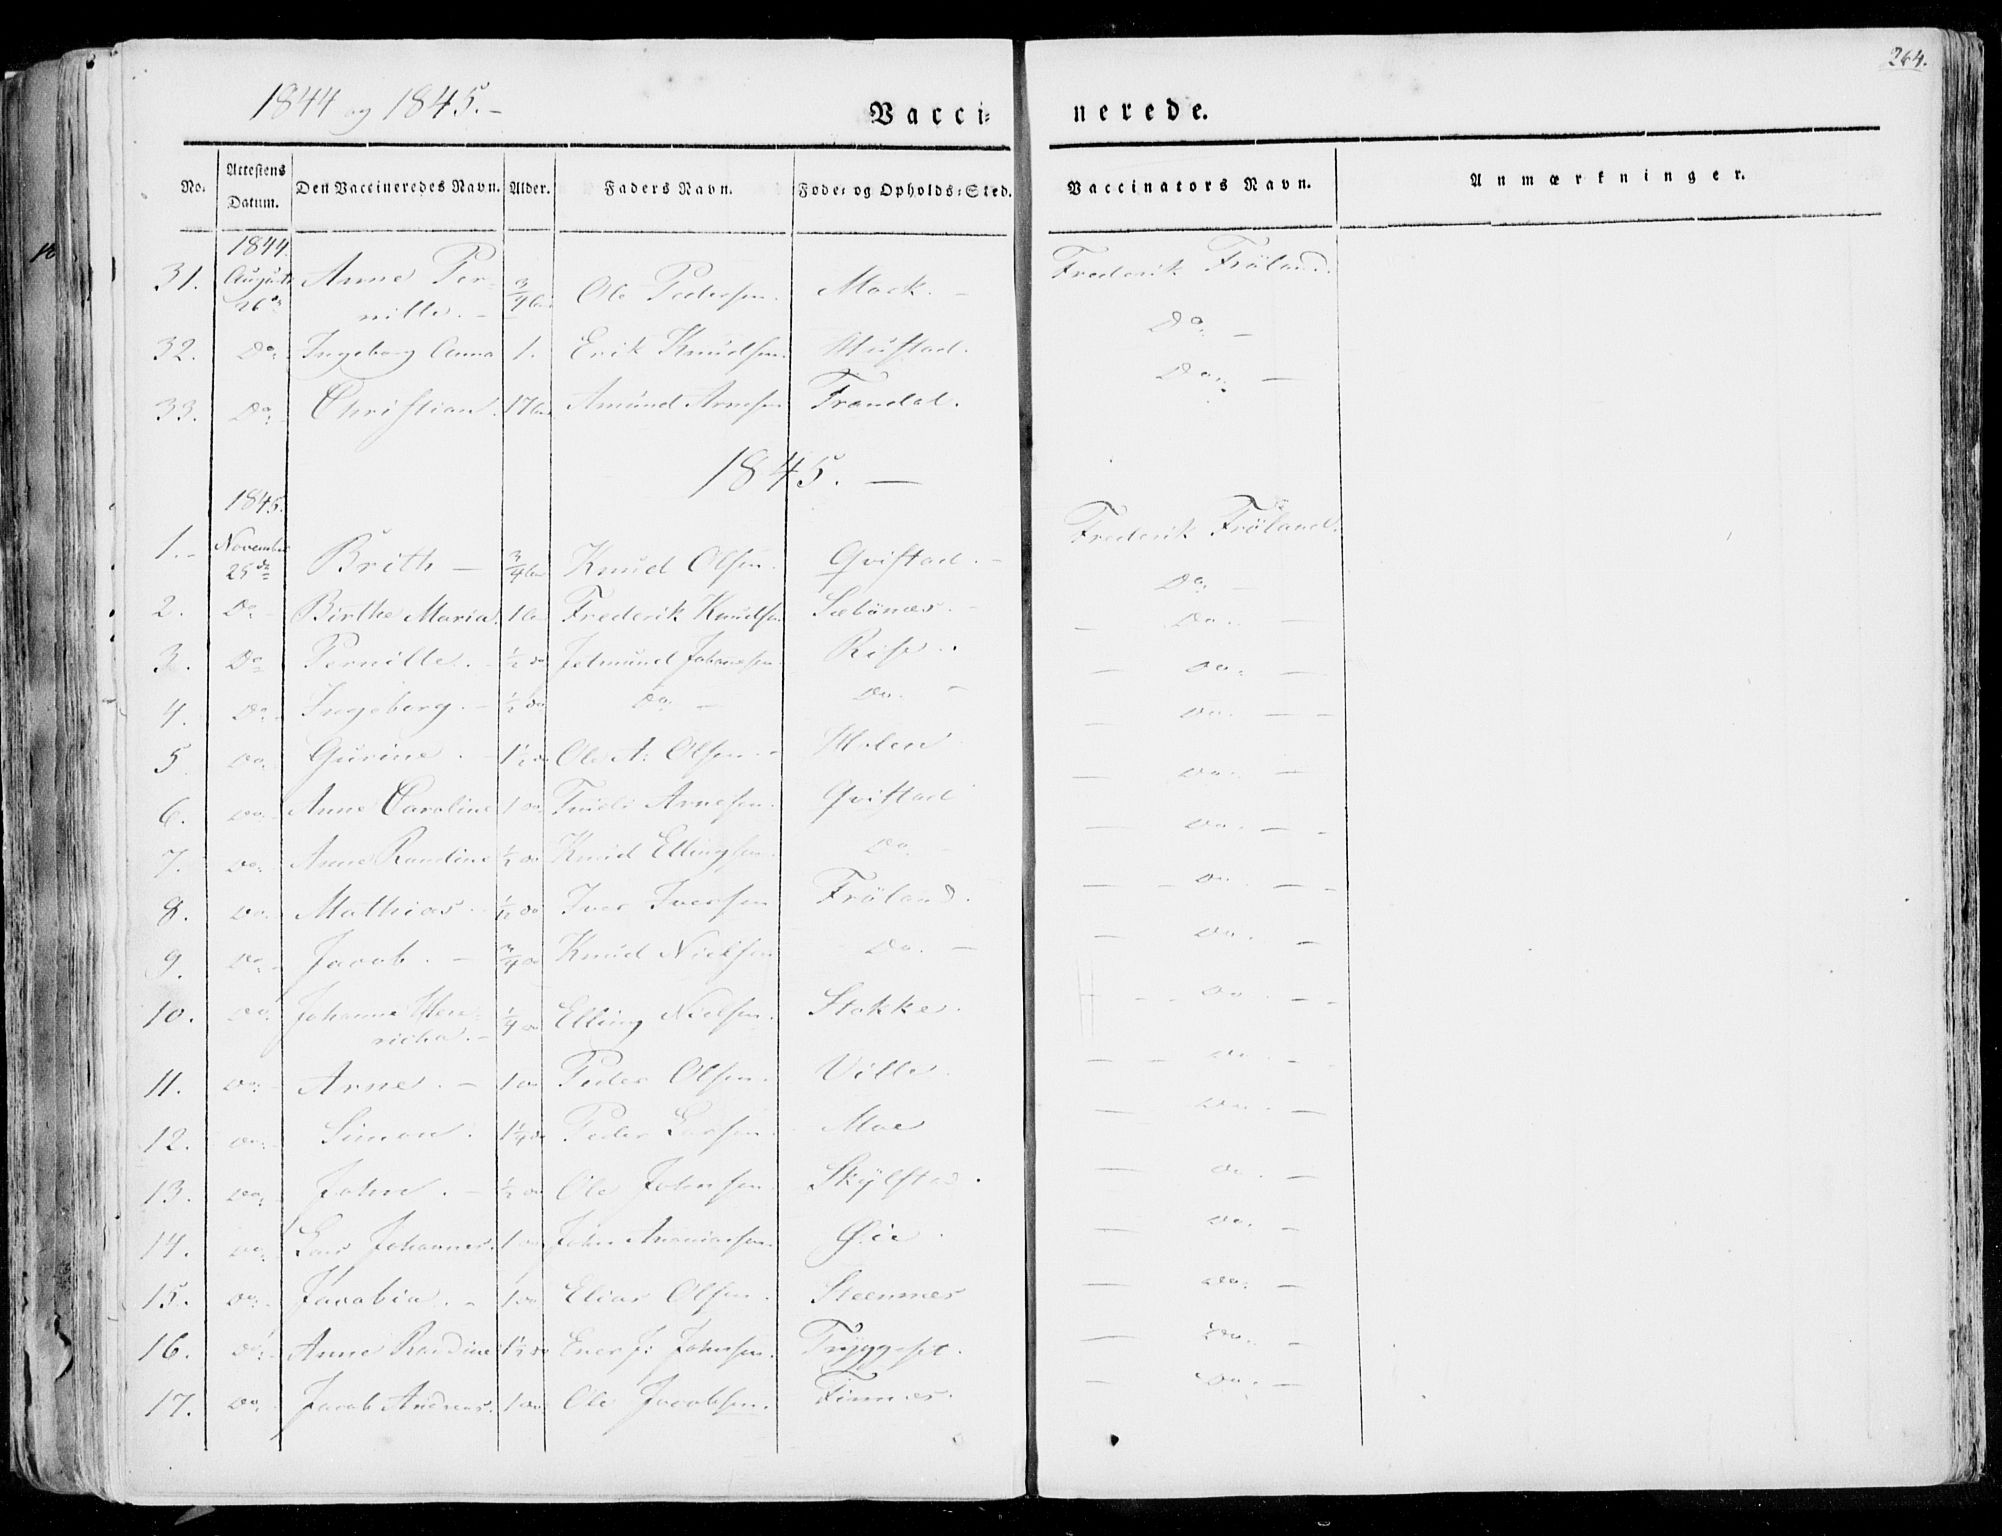 264.
1844 og 1845. –
Vacci= nerede.
No. Attestens Datum. Den Vaccineredes Navn. Alder. Faders Navn. Føde= og Opholds=Sted. Vaccinators Navn. Anmærkninger.
1844.
31. August 26de Anne Per= nille. – 3/4 Ole Pedersen. Moek. – Frederik Fröland.
32. Do. Ingeborg Anna 1. Erik Knudsen. Mustad. Do. –
33. Do. Christian. 17 Amund Arnesen Frøndal. Do. –
1845. –
1845.
1. – November 25de Brith – 3/4 Knud Olsen. Qvistad. – Frederik Fröland.
2. Do – Birthe Maria. 1 Frederik Knudsen Sæbönæs. – Do. –
3. Do Pernille. – 1/2 do Jetmund Johannesen Rise. – Do. –
4. Do. – Ingeberg. – 1/2 do Do. – Do. – – Do. –
5. Do. Gurine. – 1 1/2 do Ole A. Olsen. – Holen – Do. – –
6. Do. Anne Caroline 1 do Arnesen. Qvistad – Do. –
7. Do. Anne Randine 1/2 do Knud Ellingsen. Do. – – Do. – –
8. Do. Mathias – do Iver Iversen Fröland. – – Do. – –
9. Do. – Jacob. – 3/4 do Knud Nielsen Do. – – Do. –
10. Do. Johanne Hen= richa. – 1/4 do Elling Nielsen. Stokke. – – – Do. – –
11. Do. – Arne. – 1 do Peder Olsen. Ville. – – Do. – –
12. Do. Simon. 1 1/4 do Peder Larsen. Moe – Do. –
13. Do. John. – 1/2 do Ole Johnsen. Skylstad. – Do. –
14. Do. Lars Johannes. 1 do John Ananiasen. Øie. – Do. –
15. Do. Jacobia. – 1 do Elias Olsen. Steennes – Do. –
16. Do. Anne Randine 1 1/2 do J. Johnsen. Tryggeset. – Do. –
17. Do. Jacob Andreas. 1 do Ole Jacobsen. Finnes. – Do. –